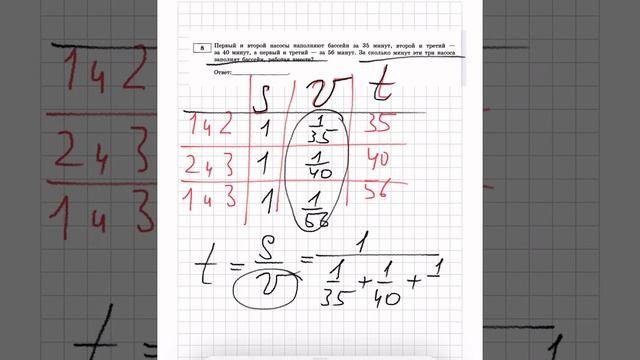 8 Первый и второй насосы наполняют бассейн за 35 минут, второй и третий —
за 40 минут, а первый и третий — за 56 минут. За сколько минут эти три насоса
заполнят бассейн, работая вместе?
Ответ:
S v t
1 и 2 1 1/35 35
2 и 3 1 1/40 40
1 и 3 1 1/56 56
t = S/v = 1/(1/35 + 1/40 + 1